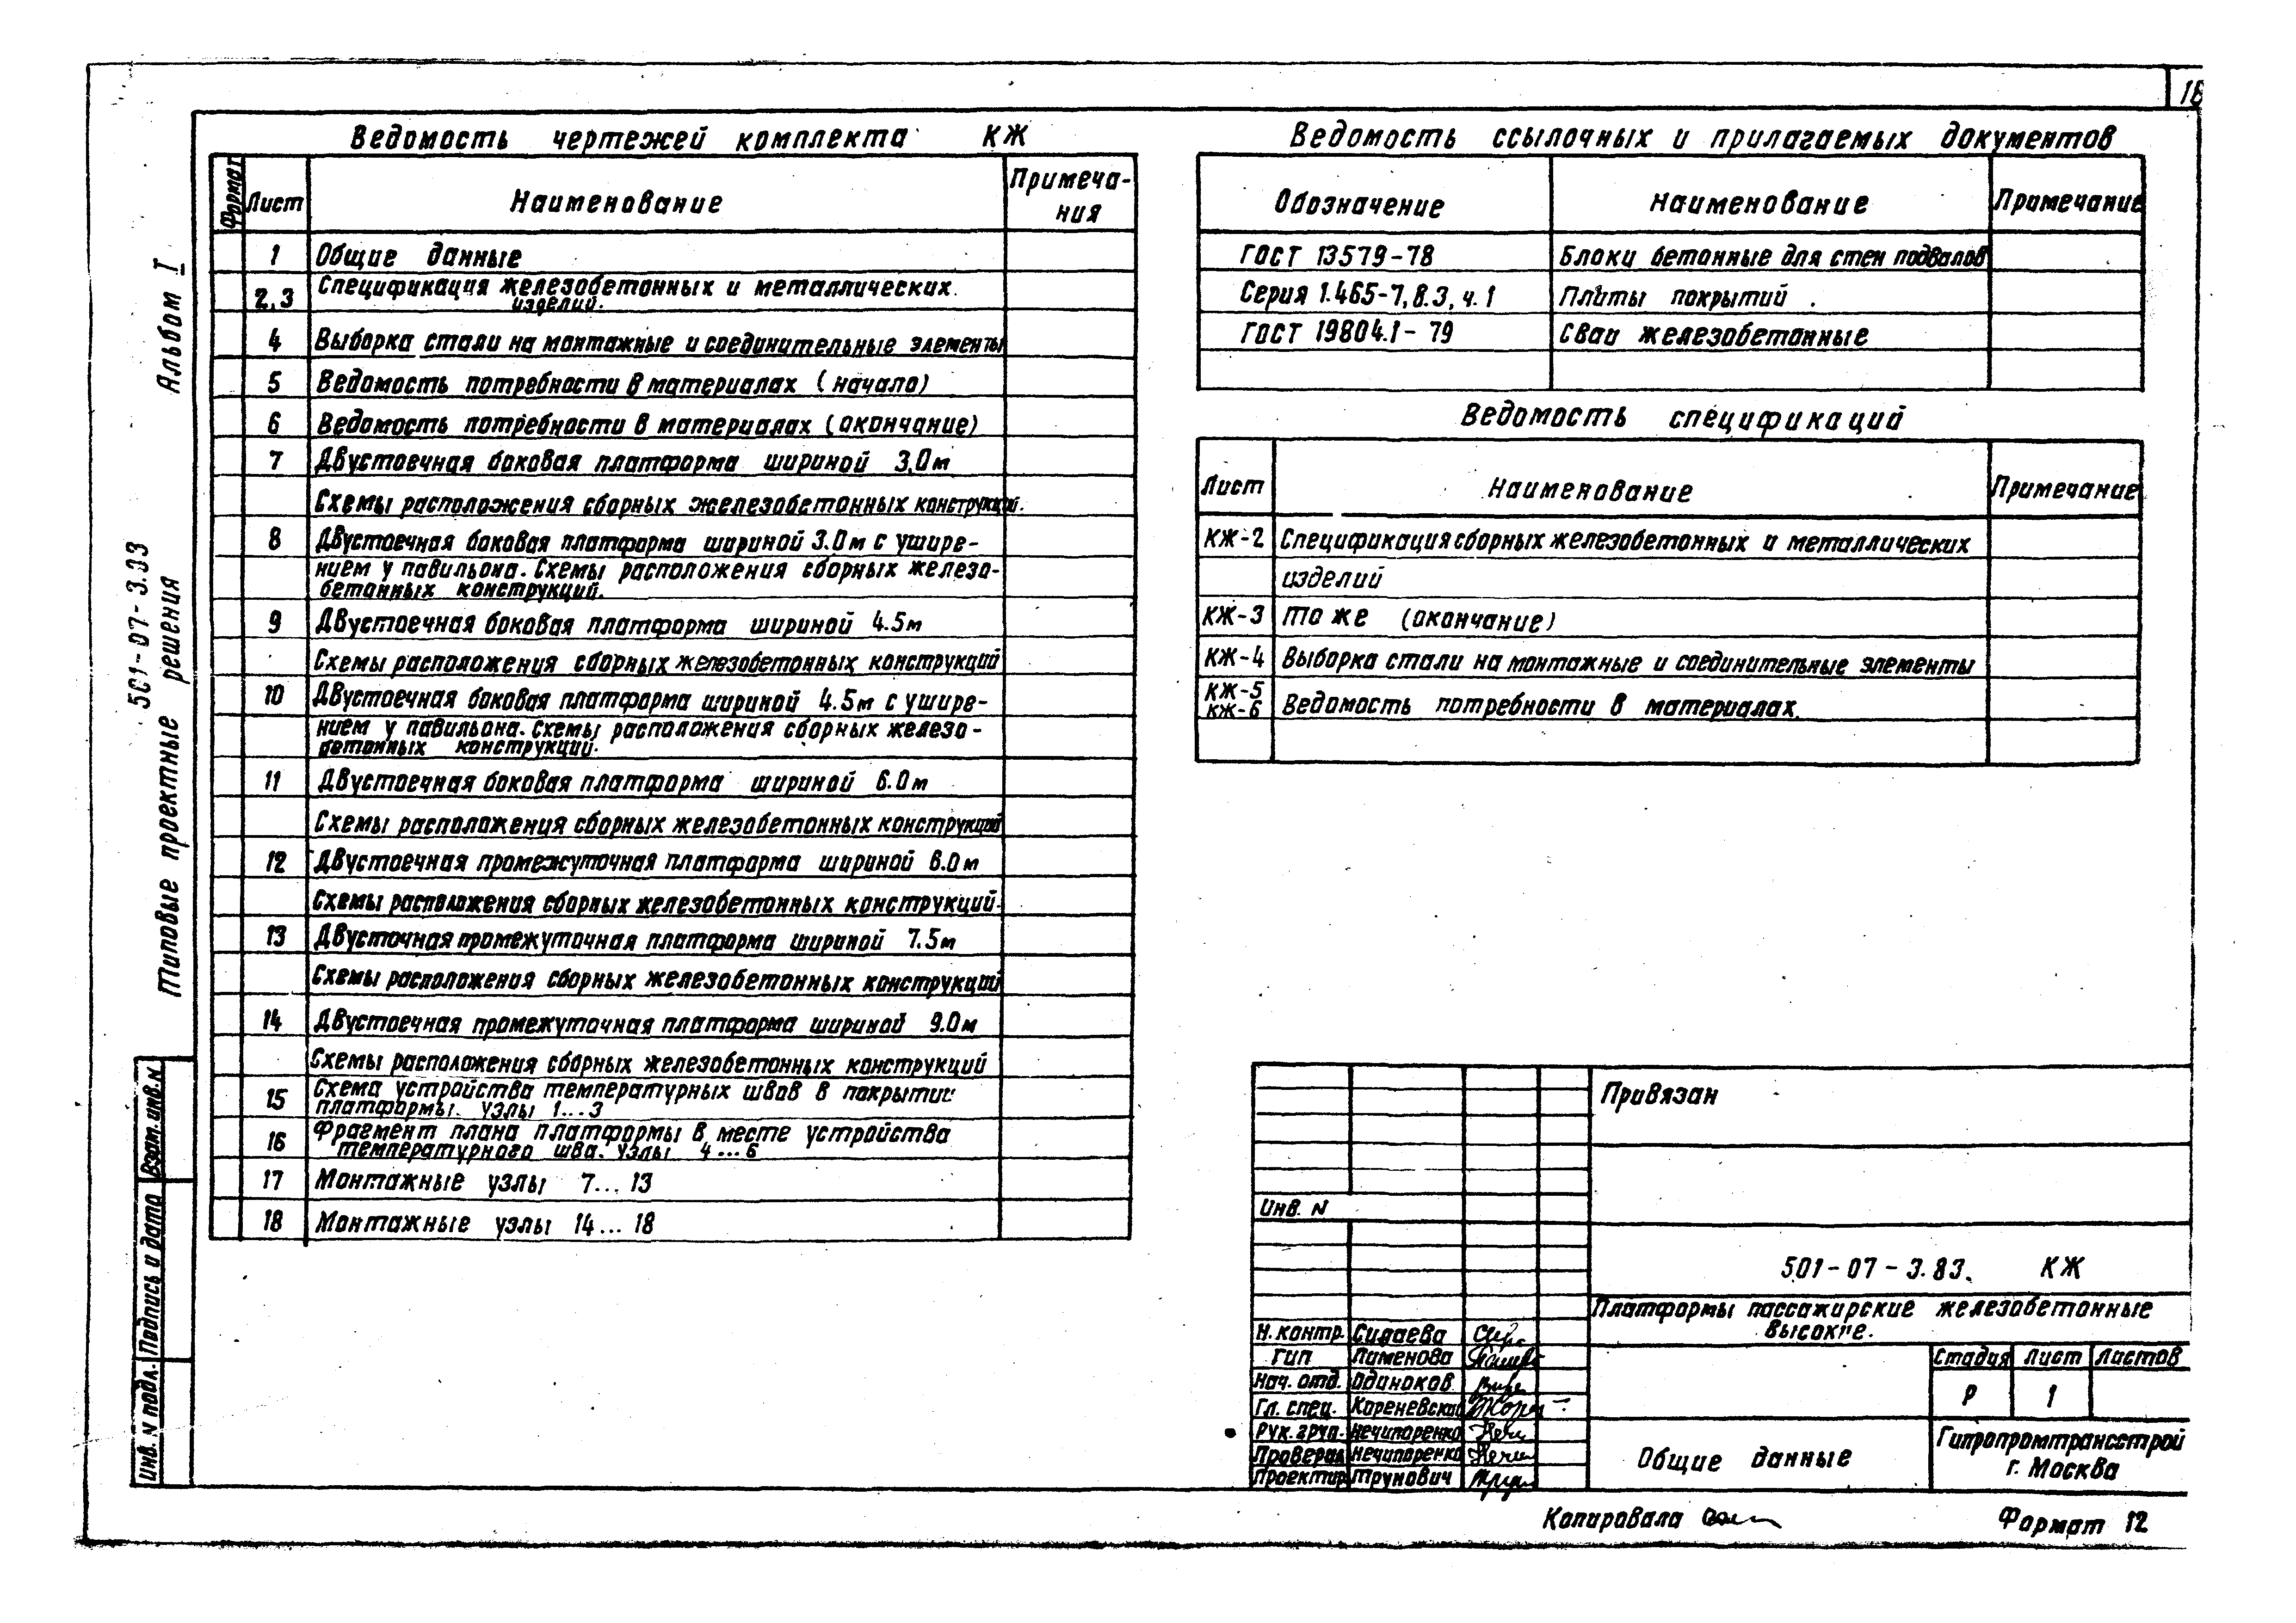 16
Ведомость чертежей комплекта КЖ
Формат
Лист
Наименование
Примеча-
ния
1 Общие данные
2,3 Спецификация железобетонных и металлических
изделий.
4 Выборка стали на монтажные и соединительные элементы
5 Ведомость потребности в материалах (начало)
6 Ведомость потребности в материалах (окончание)
7 Двустоечная боковая платформа шириной 3,0м
Схемы расположения сборных железобетонных конструкций.
8 Двустоечная боковая платформа шириной 3.0м с ушире-
нием у павильона. Схемы расположения сборных железо-
бетонных конструкций.
9 Двустоечная боковая платформа шириной 4.5м
Схемы расположения сборных железобетонных конструкций
10 Двустоечная боковая платформа шириной 4.5м с ушире-
нием у павильона. Схемы расположения сборных железо-
бетонных конструкций.
11 Двустоечная боковая платформа шириной 6.0м
Схемы расположения сборных железобетонных конструкций
12 Двустоечная промежуточная платформа шириной 6.0м
Схемы расположения сборных железобетонных конструкций.
13 Двусточная промежуточная платформа шириной 7.5м
Схемы расположения сборных железобетонных конструкций
14 Двустоечная промежуточная платформа шириной 9.0м
Схемы расположения сборных железобетонных конструкций
15 Схема устройства температурных швов в покрытии
платформы. Узлы 1...3
16 Фрагмент плана платформы в месте устройства
температурного шва. Узлы 4...6
17 Монтажные узлы 7...13
18 Монтажные узлы 14...18
Ведомость ссылочных и прилагаемых документов
Обозначение Наименование Примечание
ГОСТ 13579-78 Блоки бетонные для стен подвалов
Серия 1.465-7, в.3, ч.1 Плиты покрытий.
ГОСТ 19804.1-79 Сваи железобетонные
Ведомость спецификаций
Лист Наименование Примечание
КЖ-2 Спецификация сборных железобетонных и металлических
изделий
КЖ-3 То же (окончание)
КЖ-4 Выборка стали на монтажные и соединительные элементы
КЖ-5
КЖ-6 Ведомость потребности в материалах.
Типовые проектные решения
501-07-3.83
Альбом I
Взам. инв. N
Подпись и дата
Инв. N подл.
Привязан
Инв. N
501-07-3.83. КЖ
Платформы пассажирские железобетонные
высокие.
Н. контр. Сидаева
ГИП Пименова
Нач. отд. Одиноков
Гл. спец. Кореневский
Рук. груп. Нечипоренко
Проверил Нечипоренко
Проектир. Трунович
Стадия Лист Листов
Р 1
Общие данные
Гипропромтрансстрой
г. Москва
Копировала
Формат 12